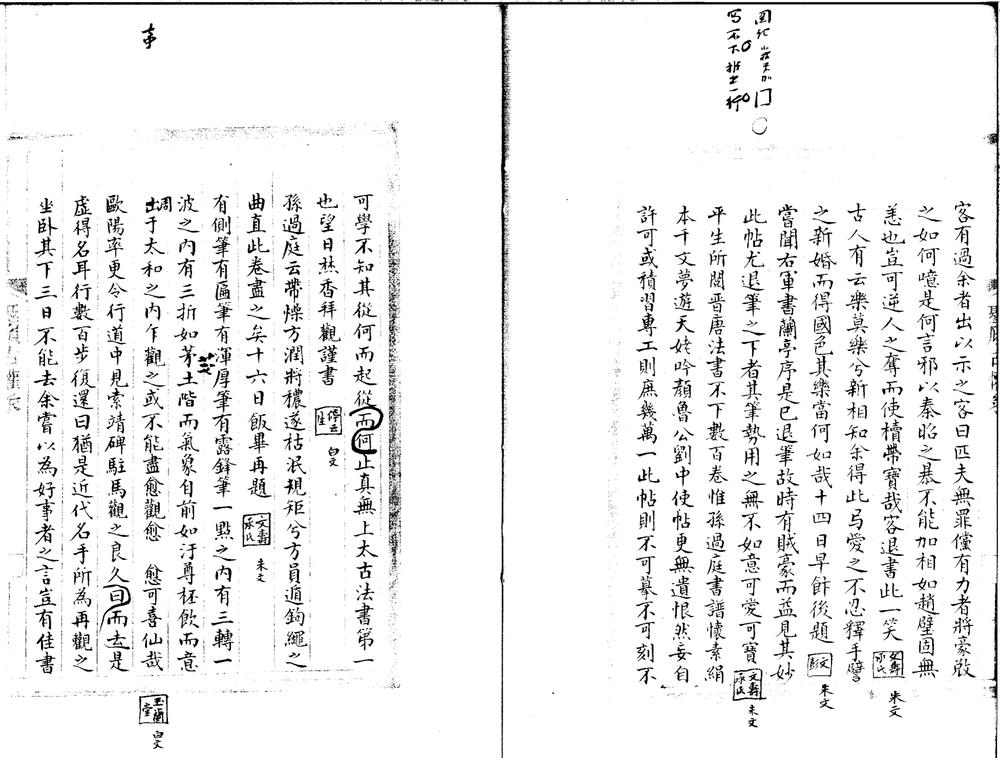 客有過余者出以示之客曰匹夫無罪僅有力者將豪敓
之如何噫是何言邪以秦昭之暴不能加相如趙璧固無
恙也豈可逆人之奪而使櫝帶寶哉客退書此一笑
文壽承氏 朱文
古人有云樂莫樂兮新相知余得此与愛之不忍釋手譬
之新婚而得國色其樂當何如哉十四日早飰後題
文彭 朱文
嘗聞右軍書蘭亭序是已退筆故時有賊豪而益見其妙
此帖尤退筆之下者其筆勢用之無不如意可愛可寶
文壽承氏 朱文
平生所閱晉唐法書不下數百卷惟孫過庭書譜懷素絹
本千文夢遊天姥吟顏魯公劉中使帖更無遺恨然妄自
許可或積習專工則庶幾萬一此帖則不可摹不可刻不
可學不知其從何而起從而何止真無上太古法書第一
也望日爇香拜觀謹書
停云生 白文
孫過庭云帶燥方潤將穠遂枯泯規矩兮方員遁鉤繩之
曲直此卷盡之矣十六日飯畢再題
文壽承氏 朱文
有側筆有匾筆有渾厚筆有露鋒筆一點之內有三轉一
波之內有三折如茅土階而氣象自前如汙尊杯飲而意
茨
出于太和之內乍觀之或不能盡愈觀愈 愈可喜仙哉
周
玉蘭堂 白文
歐陽率更令行道中見索靖碑駐馬觀之良久曰而去是
虛得名耳行數百步復還曰猶是近代名手所為再觀之
坐臥其下三日不能去余嘗以為好事者之言豈有佳書